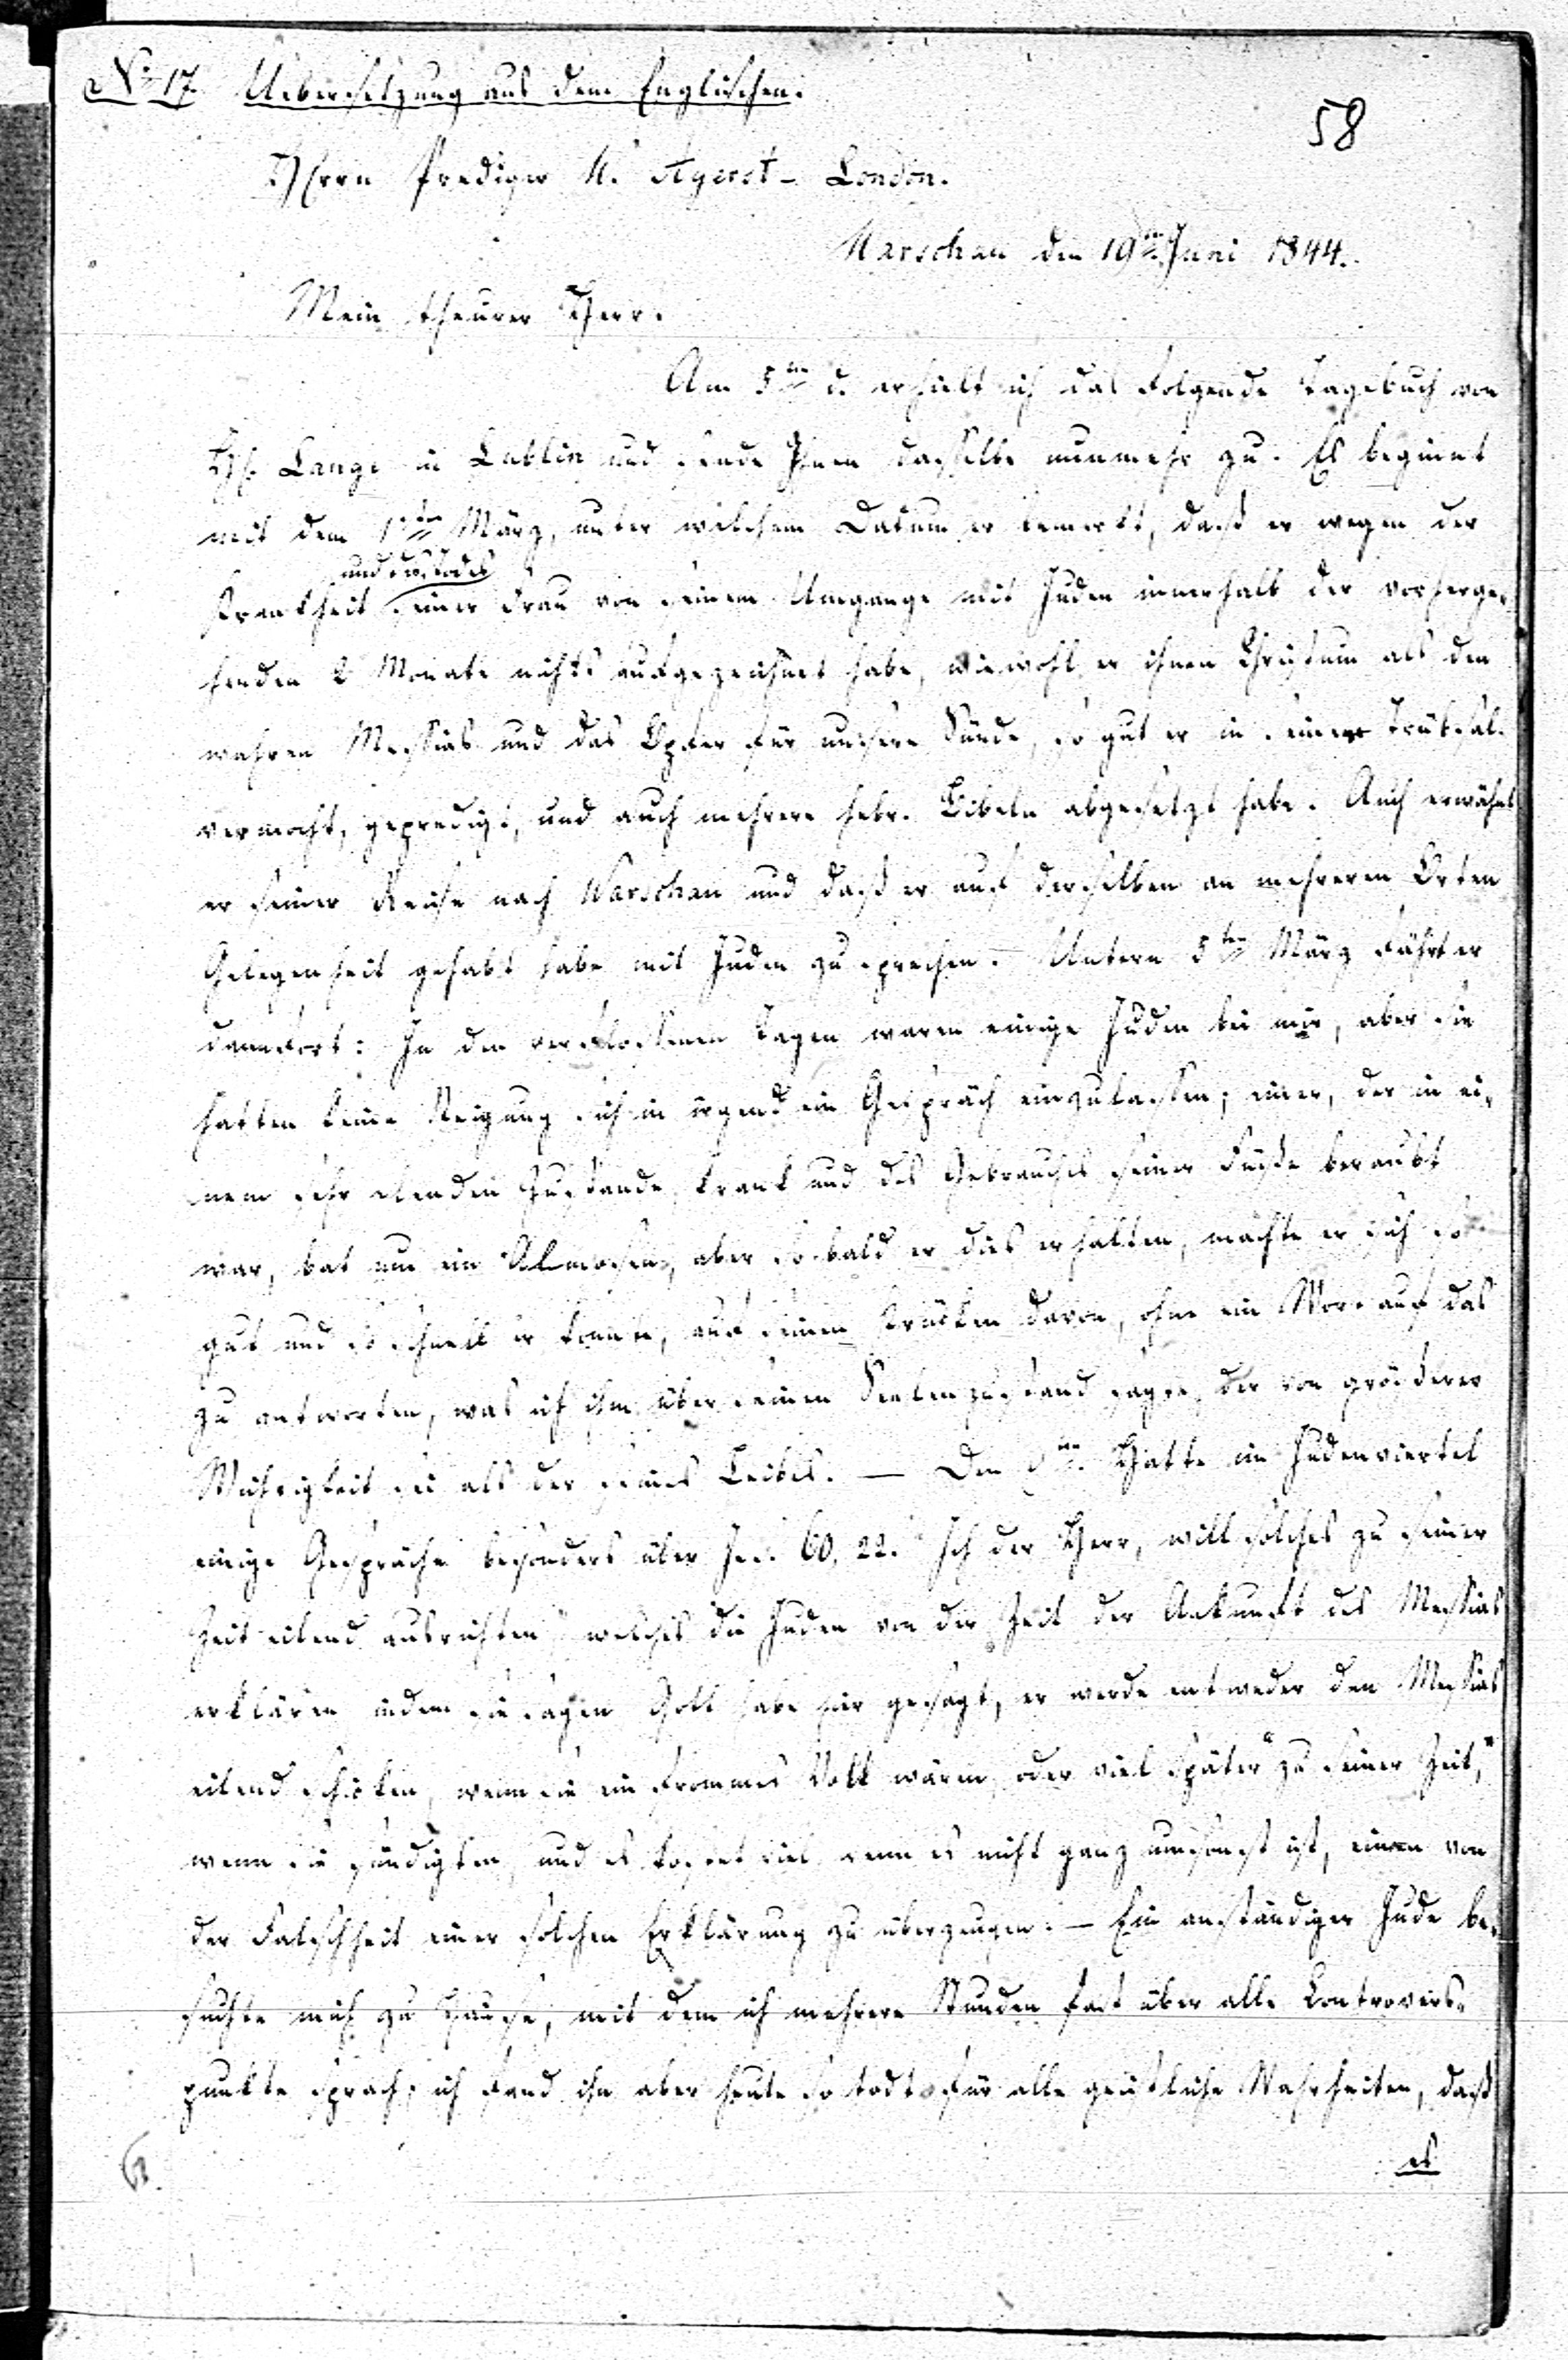 No 17. Uebersetzung aus dem Englischen.
58
Herrn Prediger W. Ayerst - London.
Warschau den 19ten Juni 1844.
Mein theurer Herr.
Am 5ten d. erhielt ich das folgende Tagebuch von
H. Lange in Lublin und sende Ihnen dasselbe nunmehr zu. Es beginnt
mit dem 1sten März, unter welchem Datum er bemerkt, daß er wegen der
und des Todes
Krankheit seiner Frau von seinem Umgange mit Juden innerhalb der vorherge-
henden 2 Monate nichts aufgezeichnet habe, wiewohl er ihnen Christum als den
wahren Messias und das Opfer für unsere Sünde, so gut er in seiner Trübsal
vermocht, gepredigt, und auch mehrere hebr. Bibeln abgesetzt habe. Auch erwähnt
er seiner Reise nach Warschau und daß er auf derselben an mehreren Orten
Gelegenheit gehabt habe mit Juden zu sprechen. Unterm 5ten März fährt er
dann fort: In den verflossenen Tagen waren einige Juden bei mir, aber sie
hatten keine Neigung sich in irgend ein Gespräch einzulassen; einer, der in ei-
nem sehr elenden Zustande, krank und des Gebrauches seiner Füße beraubt
war, bat um ein Almosen, aber sobald er dies erhalten, machte er sich so
gut und so schnell er konnte, auf seinen Krücken davon, ohne ein Wort auf das
zu antworten, was ich ihm über seinen Seelenzustand sagte, der von größerer
Wichtigkeit sei als der seines Leibes. — Den ten. Hatte im Judenviertel
einige Gespräche besonders über Jes. 60, 22. "Ich der Herr, will solches zu seiner
Zeit eilend ausrichten" welches die Juden von der Zeit der Ankunft des Messias
erklären indem sie sagen Gott habe hier gesagt, er werde entweder den Messias
eilend schicken, wenn sie ein frommes Volk wären, oder viel später "zu seiner Zeit,"
wenn sie sündigten, und es kostet viel wenn es nicht ganz umsonst ist, einen von
der Falschheit einer solchen Erklärung zu überzeugen. — Ein anständiger Jude be-
suchte mich zu Hause, mit dem ich mehrere Stunden fast über alle Controvers-
punkte sprach; ich fand ihn aber heute so todt für alle geistliche Wahrheiten, daß
es